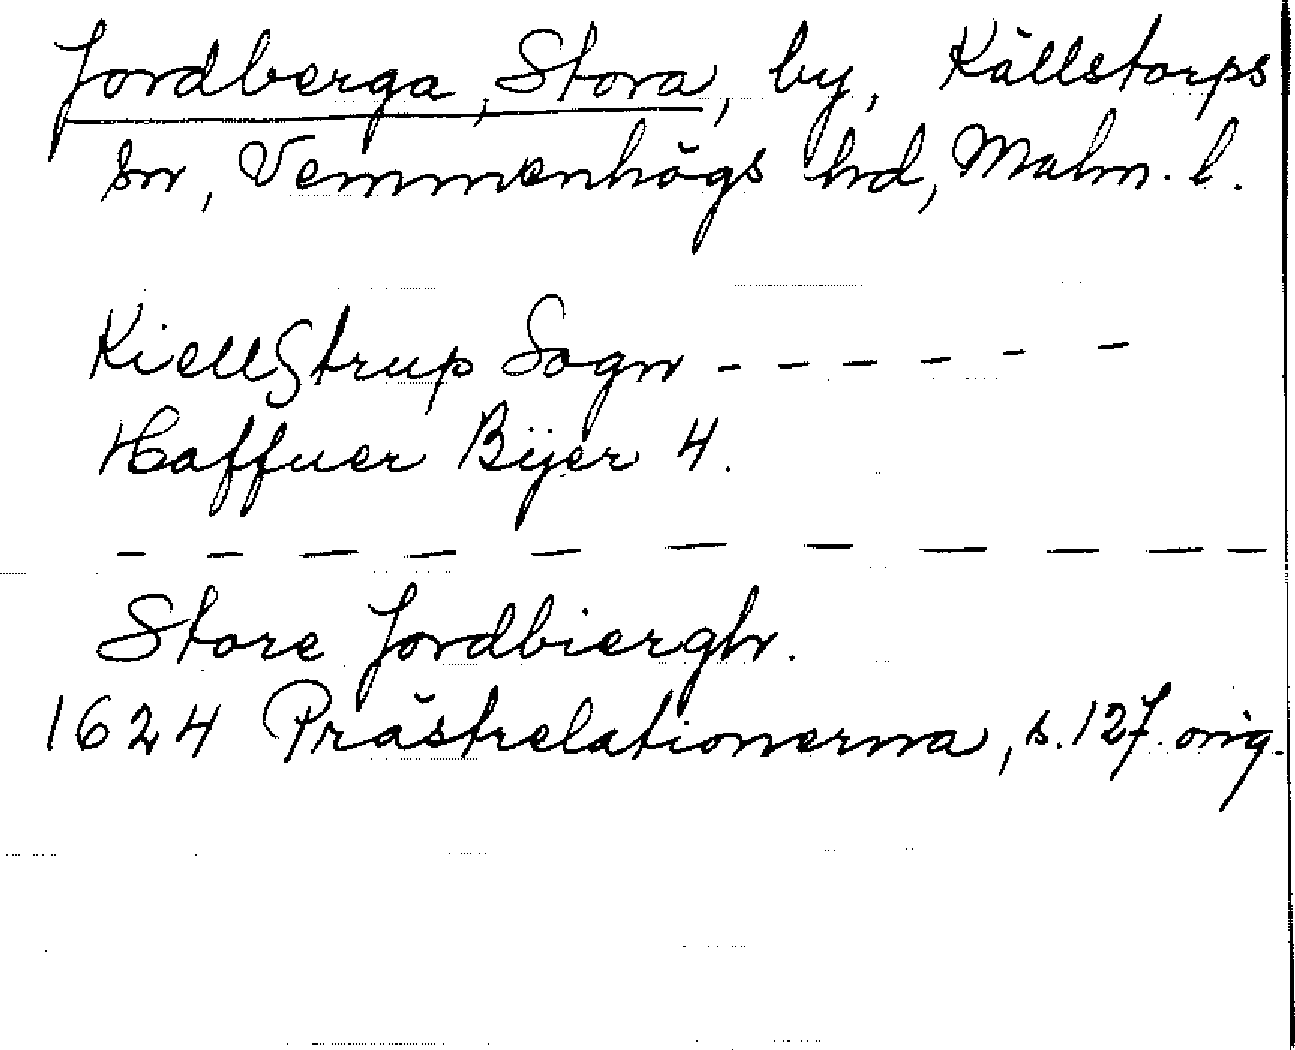 Jordberga, Stora, by, Källstorps
sn, Vemmenhögs hd, Malm. l.
Kiellstrup Sogn - - - - - -
Haffuer Bÿer 4.
- - - - - - - - - - -
Store Jordbiergh.
1624 Prästrelationerna, s. 127. orig.